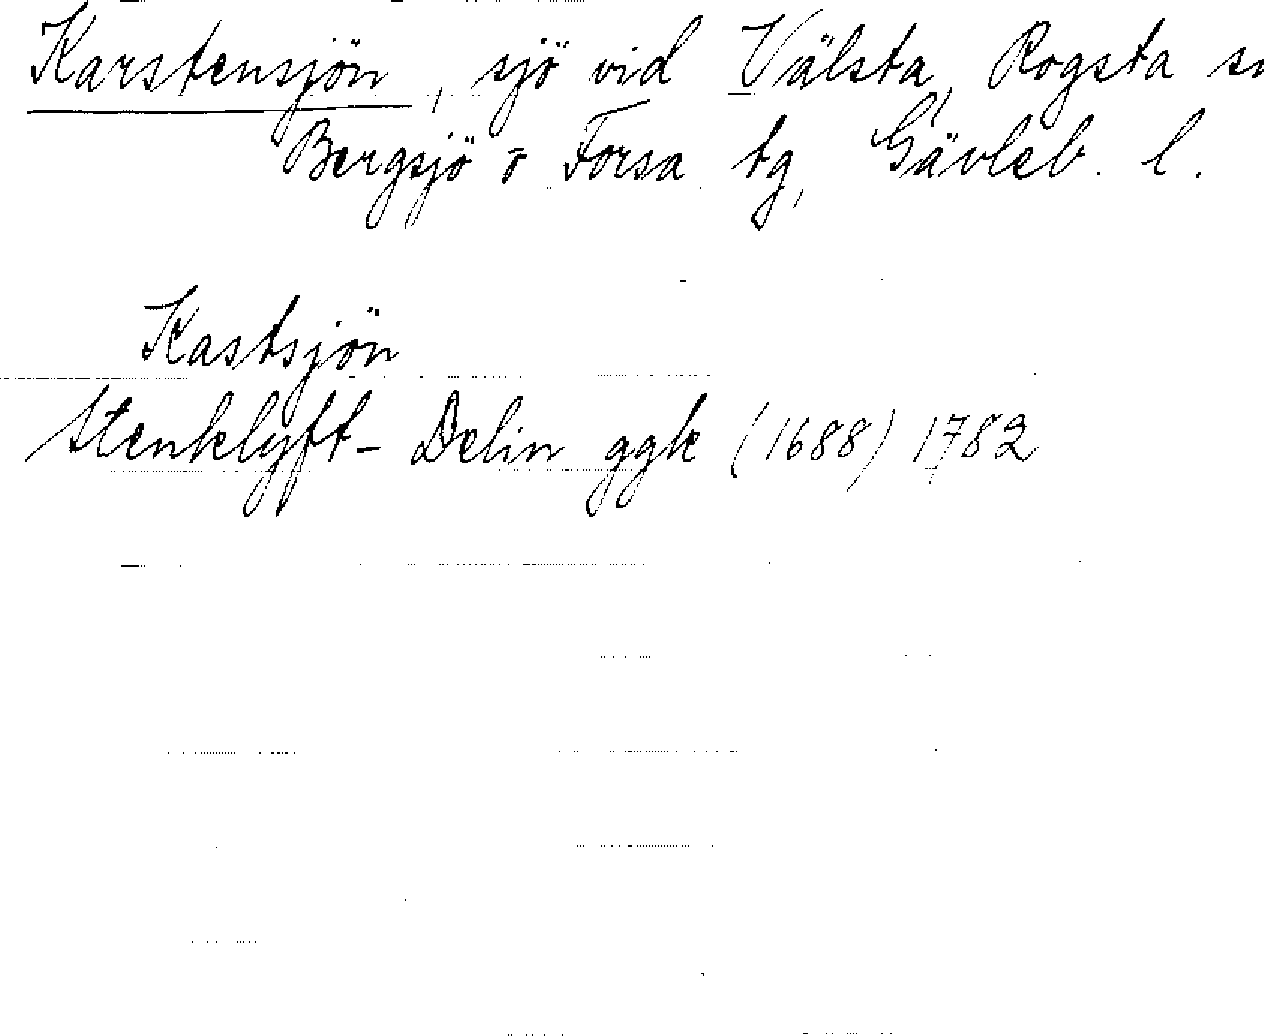 Karstensjön, sjö vid Välsta, Rogsta
Bergsjö o Forsa tg, Gävleb. l.
Kastsjön
Stenklyft- Delin ggk (1688) 1782